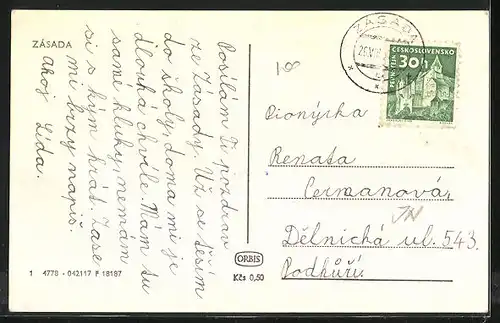 ZÁSADA
Posílám Ti pozdrav
ze Zásady. Už se těším
do školy, doma mi je
dlouhá chvíle. Mám tu
samé kluky, nemám
si s kým hrát. Zase
mi brzy napiš.
Ahoj Lída.
1 4778 - 042117 F 18187
ORBIS
Kčs 0,50
ZÁSADA
ČESKOSLOVENSKO
30h
Pionýrka
Renata
Cermanová
Dělnická ul. 543.
Podhůří.